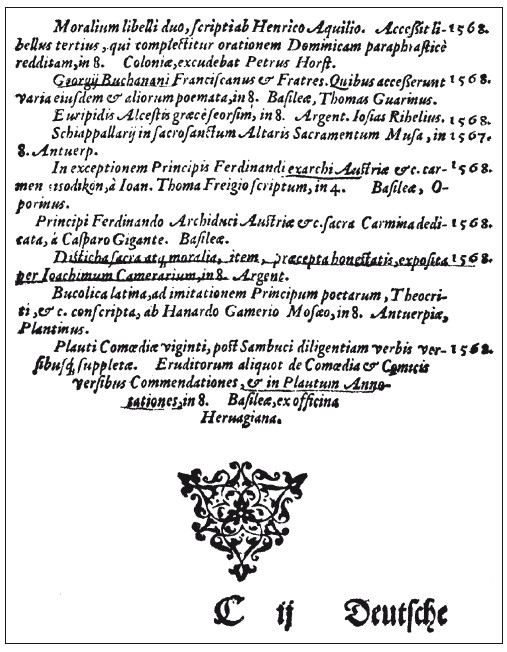 Moralium libelli duo, scripti ab Henrico Aquilio. Accessit li- 1568.
bellus tertius, qui complectitur orationem Dominicam paraphrasticè
redditam, in 8. Coloniæ, excudebat Petrus Horst.
Georgij Buchanani Franciscanus & Fratres. Quibus accesserunt 1568.
varia eiusdem & aliorum poemata, in 8. Basileæ, Thomas Guarinus.
Euripidis Alcestis græcè seorsim, in 8. Argent. Iosias Rihelius. 1568.
Schiappallarij in sacrosanctum Altaris Sacramentum Musa, in 1567.
8. Antuerp.
In exceptionem Principis Ferdinandi exarchi Austriæ &c. car- 1568.
men à Ioan. Thoma Freigio scriptum, in 4. Basileæ, O-
porinus.
Principi Ferdinando Archiduci Austriæ &c. sacra Carmina dedi- 1568.
cata, à Casparo Gigante. Basileæ.
Disticha sacra atq; moralia, item, præcepta honestatis, exposita 1568.
per Ioachimum Camerarium, in 8. Argent.
Bucolica latina, ad imitationem Principum poetarum, Theocri-
ti, & c. conscripta, ab Hanardo Gamerio Mosæo, in 8. Antuerpiæ,
Plantinus.
Plauti Comœdiæ viginti, post Sambuci diligentiam verbis ver- 1568.
sibusq; suppletæ. Eruditorum aliquot de Comœdia & Comicis
versibus Commendationes, & in Plautum Anno-
tationes, in 8. Basileæ, ex officina
Heruagiana.
C ij Deutsche